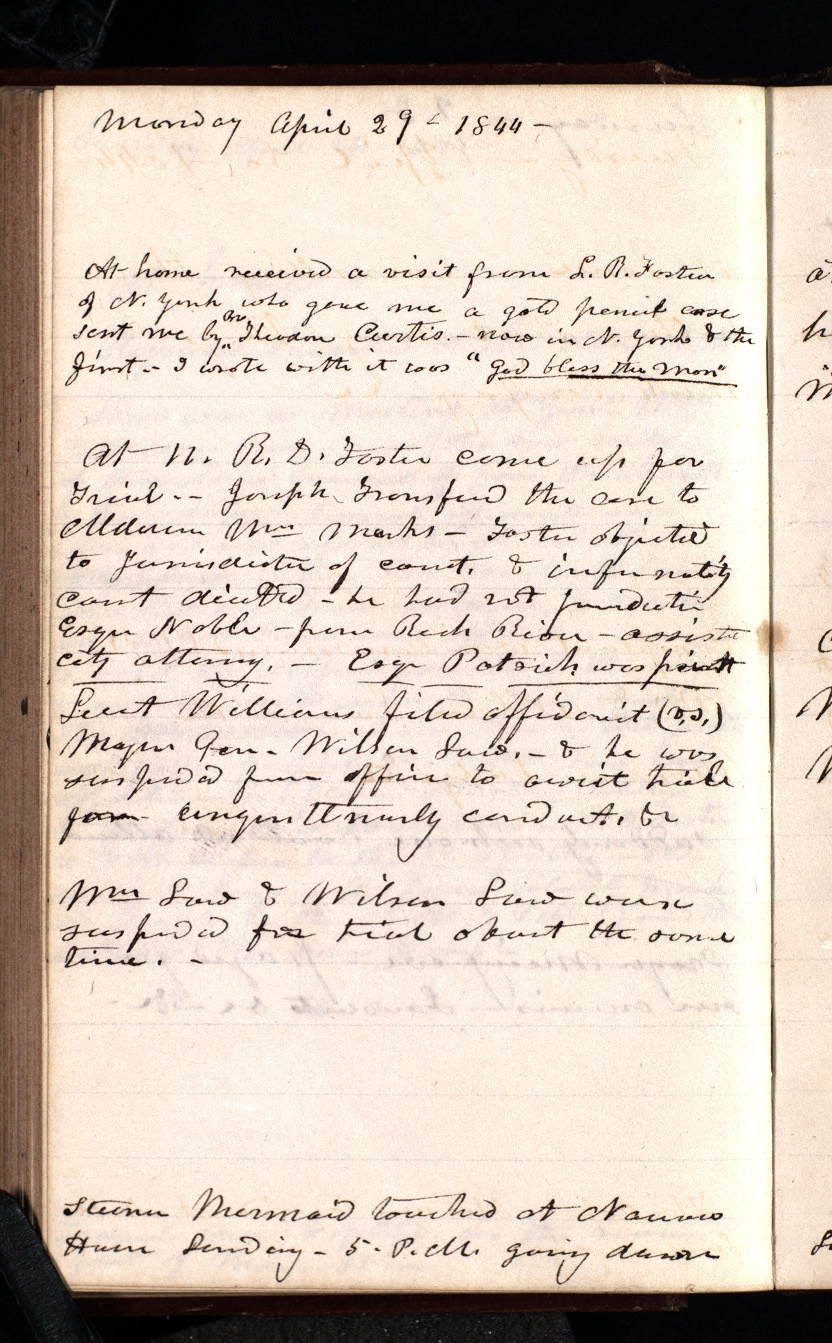 Monday April 29- 1844-
At home received a visit from L. R. Foster
of N. York who gave me a gold pencil case
sent me by Br Theodore Curtis.- now in N. York & the
first- I wrote with it was "God bless the man"
At 11. R. D. Foster come up for
Trial.- Joseph Transferd the case to
Alderman Wm Marks - Foster objected
to Jurisdiction of court. &
court decided - he had not jurisdictin
Esqr Noble - from Rock River - assistd
city attorny. - Esqr Patrick was prest
Lieut Williams filed affidavit (vs.)
Major Gen- Wilson Law.- & he was
suspended from office to await trial
for ungentlemanly conduct. &c
Wm Law & Wilson Law were
suspended for trial about the same
time. -
Steemer Mermaid touched at Nauvoo
House Sunday - 5- P.M. going down